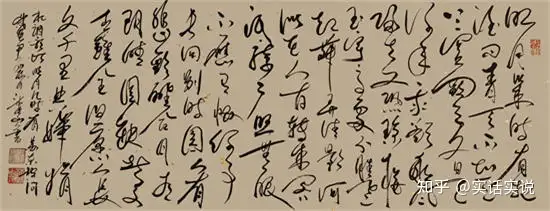 明月几時有把
酒问青天不知
天上宫阙今夕是
何年我欲乘风
归去又恐琼楼
玉宇高处不胜寒
起舞弄清影何
似在人间转朱阁
低绮户照无眠
不应有恨何事
长向别时圆人有
悲欢离合月有
阴晴圆缺此事
古难全但愿人长
久千里共婵娟
明月几时有
书
知乎 @实话实说